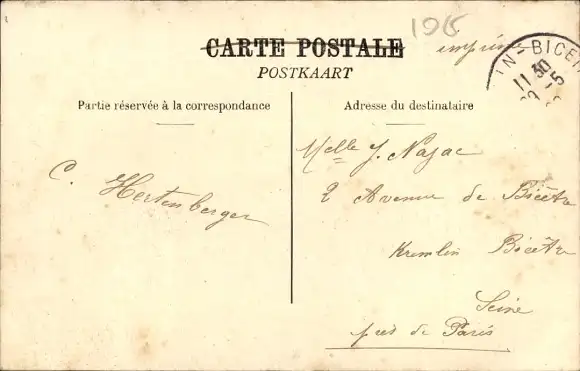 198
CARTE POSTALE
imprimé
POSTKAART
N-BICET
11 30
5
Partie réservée à la correspondance
Adresse du destinataire
C. Hertenberger
Melle J. Najac
2 Avenue de Bicêtre
Kremlin Bicêtre
Seine
près de Paris